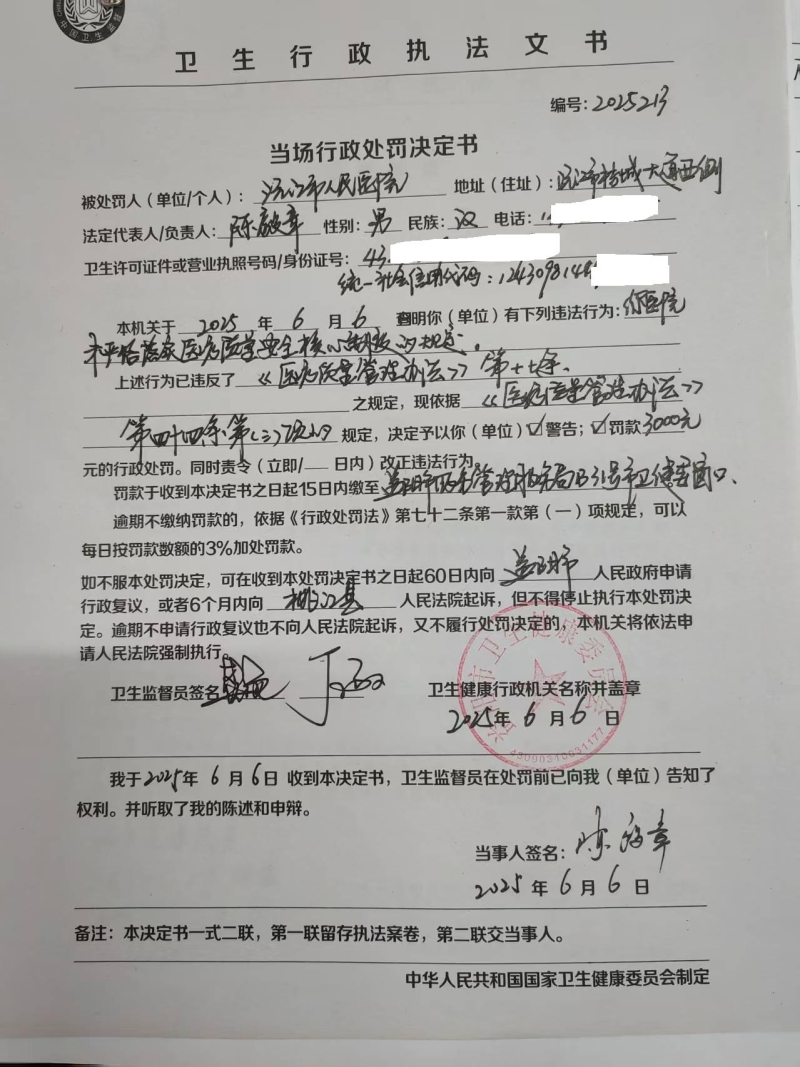 中国卫生监督
卫生行政执法文书
编号：2025213
当场行政处罚决定书
被处罚人（单位/个人）：沅江市人民医院 地址（住址）：沅江市桔城大道西侧
法定代表人/负责人：陈毅章 性别：男 民族：汉 电话：
卫生许可证件或营业执照号码/身份证号：43
统一社会信用代码：12430981448
本机关于 2025 年 6 月 6 查明你（单位）有下列违法行为：你医院
未严格落实医疗质量安全核心制度的规定。
上述行为已违反了《医疗质量管理办法》第十七条
之规定，现依据《医疗质量管理办法》
第四十四条第（三）项的 规定，决定予以你（单位）☑警告；☑罚款3000元
元的行政处罚。同时责令（立即/ 日内）改正违法行为。
罚款于收到本决定书之日起15日内缴至益阳市政务管理服务局B31号市卫健委窗口.
逾期不缴纳罚款的，依据《行政处罚法》第七十二条第一款第（一）项规定，可以
每日按罚款数额的3%加处罚款。
如不服本处罚决定，可在收到本处罚决定书之日起60日内向 益阳市 人民政府申请
行政复议，或者6个月内向 桃江县 人民法院起诉，但不得停止执行本处罚决
定。逾期不申请行政复议也不向人民法院起诉，又不履行处罚决定的，本机关将依法申
请人民法院强制执行。
卫生监督员签名： 卫生健康行政机关名称并盖章
益阳市卫生健康委员会
2025年 6 月 6 日
43090210031177
我于2025年 6 月 6日 收到本决定书，卫生监督员在处罚前已向我（单位）告知了
权利。并听取了我的陈述和申辩。
当事人签名：陈毅章
2025 年 6 月 6 日
备注：本决定书一式二联，第一联留存执法案卷，第二联交当事人。
中华人民共和国国家卫生健康委员会制定